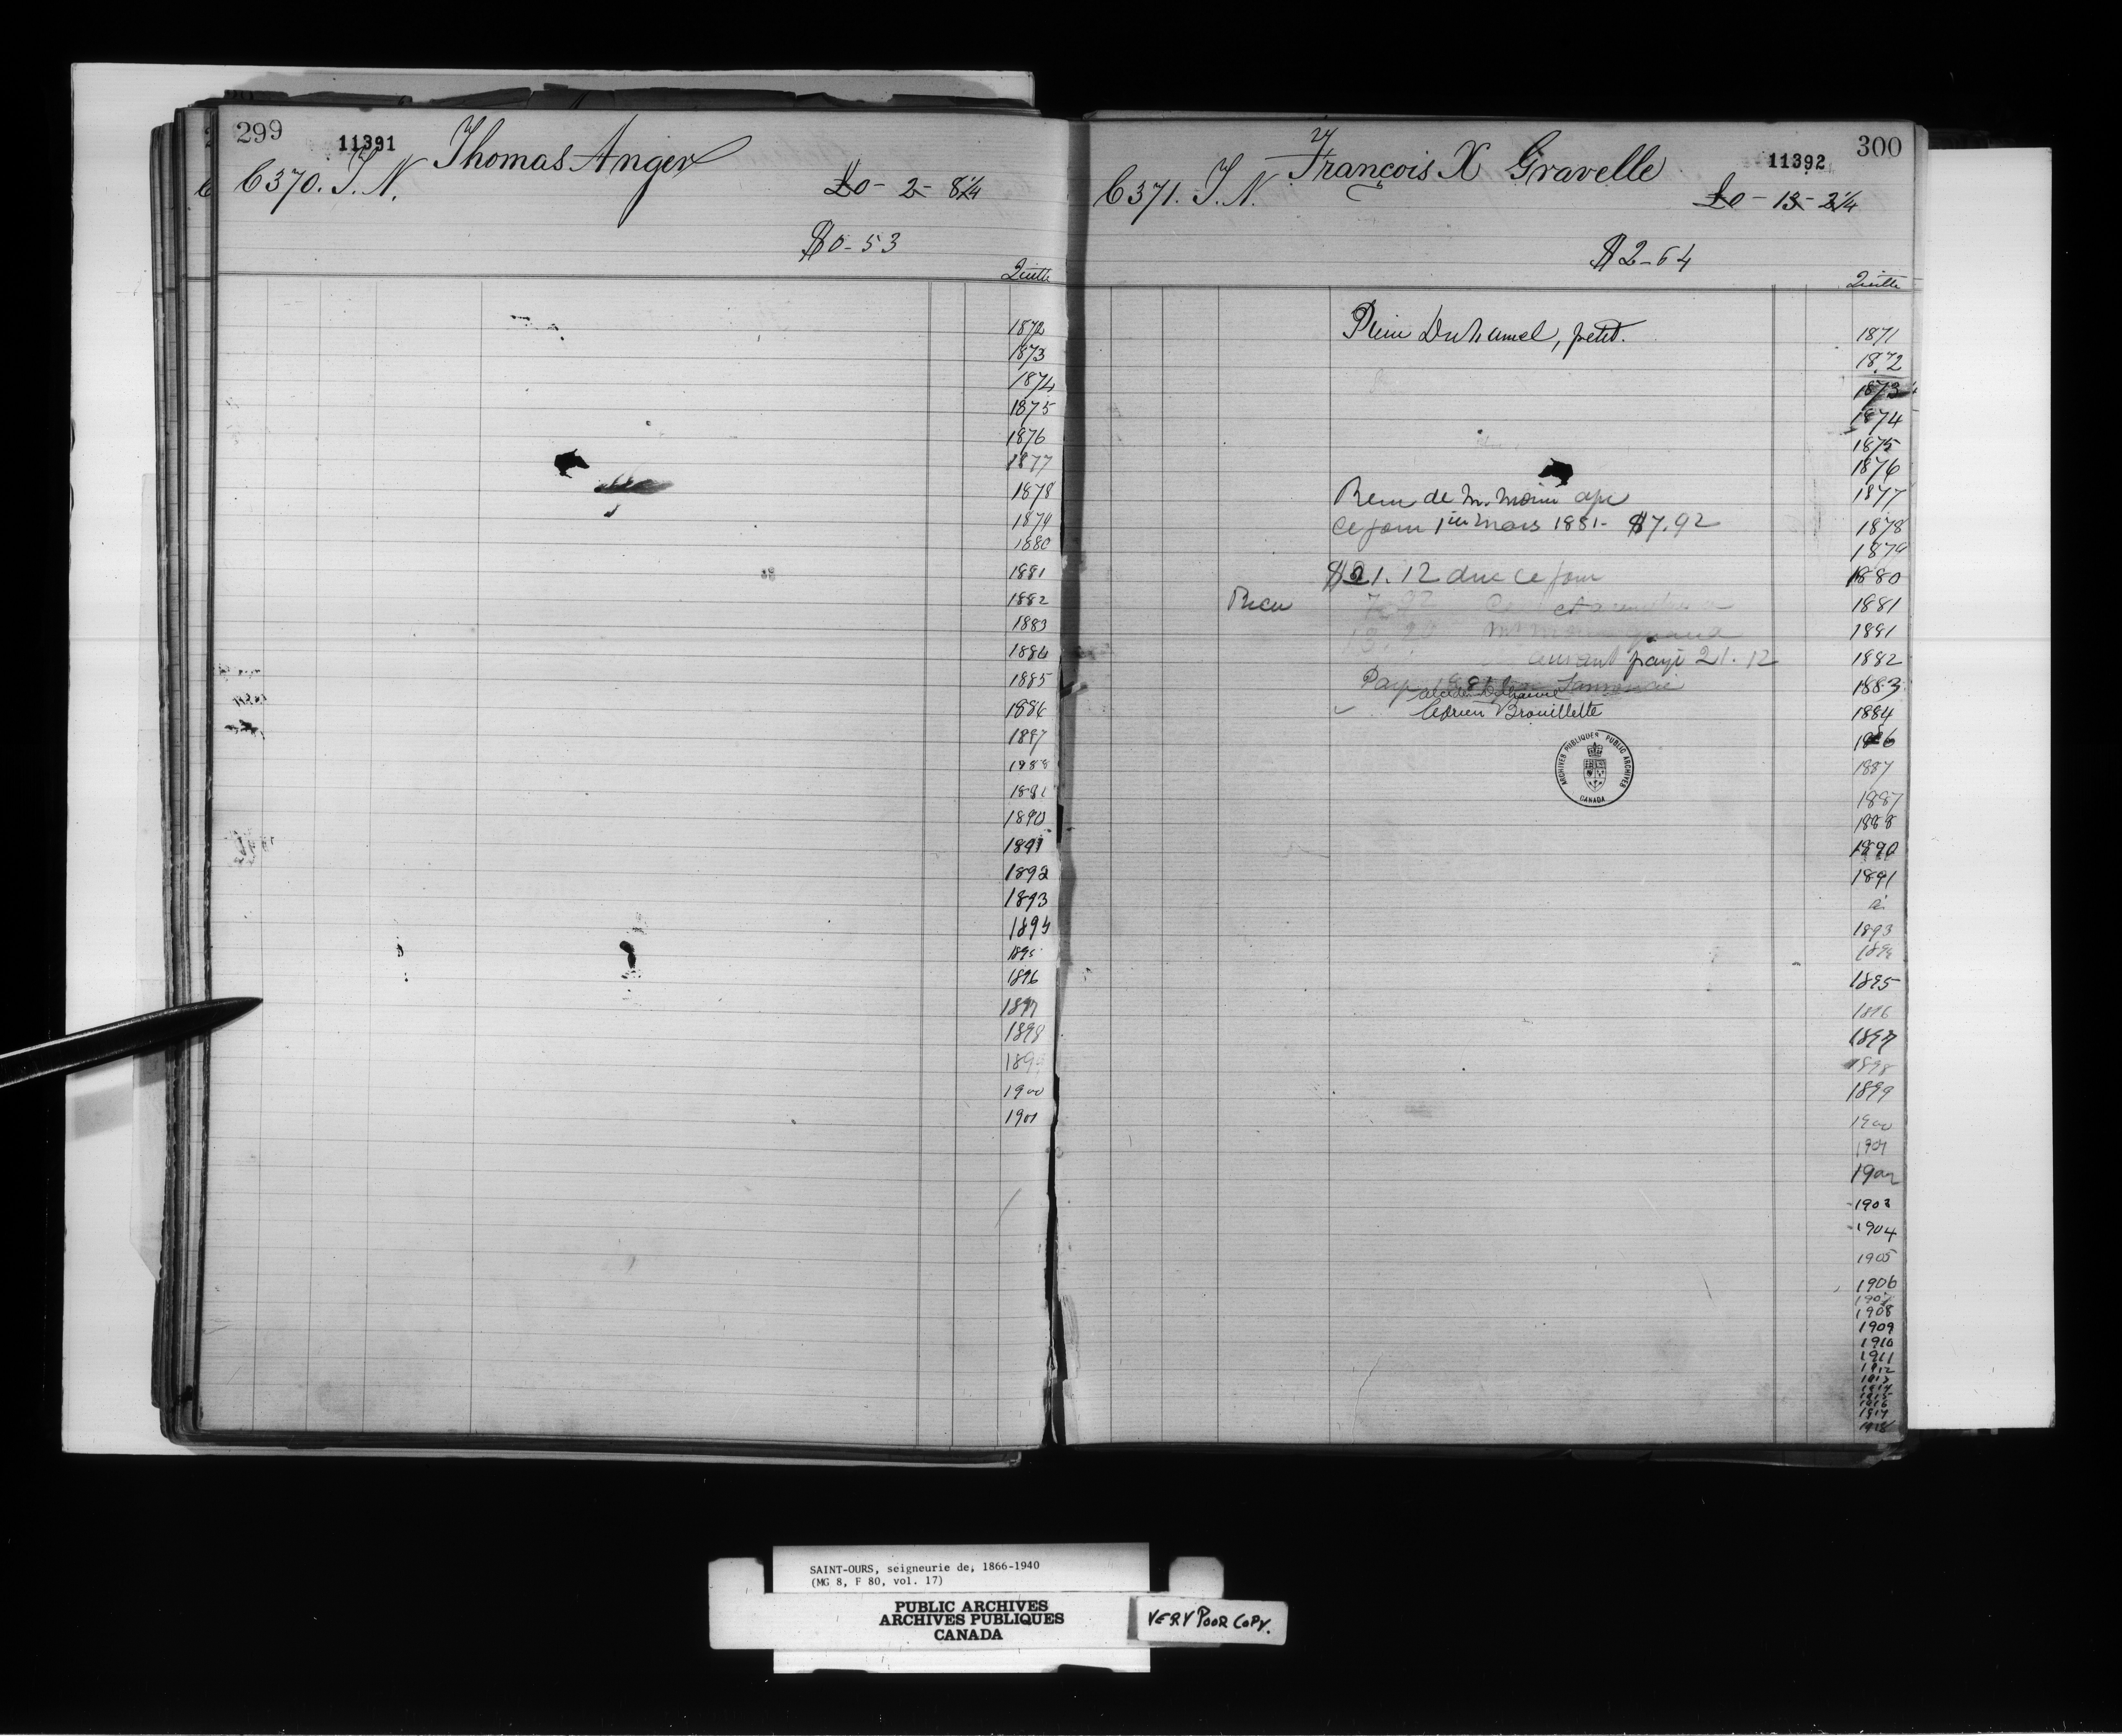 299
11391
Thomas Anger
C 370. T. N.
£0 - 2 - 8 1/4
$0-53
Quitte
1872
1873
1874
1875
1876
1877
1878
1879
1880
1881
1882
1883
1884
1885
1886
1887
1888
1890
1891
1892
1893
1894
1895
1896
1897
1898
1899
1900
1901
300
11392
François X Gravelle
C 371. T. N.
£0 - 13 - 2 1/4
$2-64
Quitte
Duhamel, petit.
de M. Morin
ce jour 1er Mars 1881 - $7.92
$21.12 due ce jour
Recu 7.92
payé 21.12
Brouillette
ARCHIVES PUBLIQUES PUBLIC ARCHIVES
CANADA
1871
1872
1873
1874
1875
1876
1877
1878
1879
1880
1881
1881
1882
1883
1884
1886
1887
1887
1888
1890
1891
à
1893
1894
1895
1896
1897
1898
1899
1900
1901
1902
1903
1904
1905
1906
1907
1908
1909
1910
1911
1912
1913
1914
1915
1916
1917
1918
SAINT-OURS, seigneurie de, 1866-1940
(MG 8, F 80, vol. 17)
PUBLIC ARCHIVES
ARCHIVES PUBLIQUES
CANADA
VERY POOR COPY.